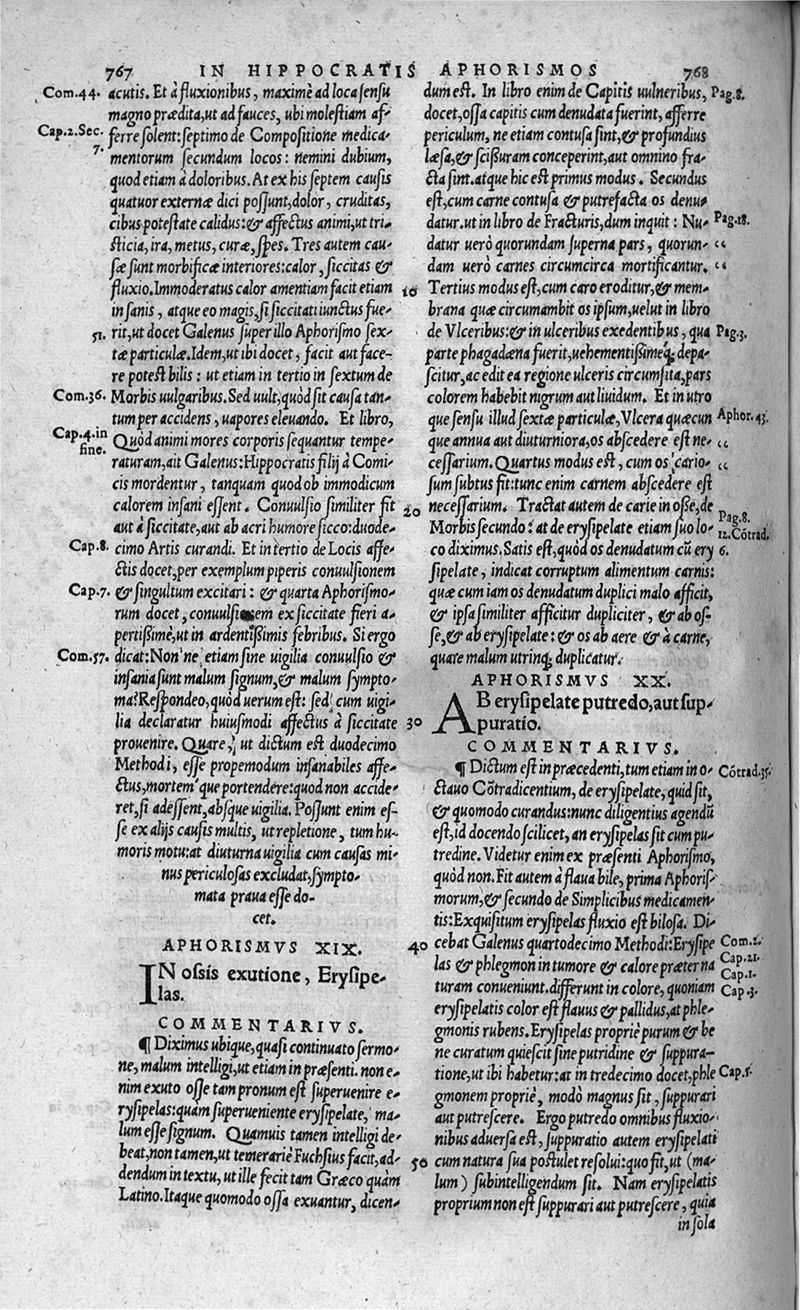 767 IN HIPPOCRATIS APHORISMOS 768
Com.44. acutis. Et à fluxionibus, maximè ad loca sensu
magno prædita, ut ad fauces, ubi molestiam af-
Cap.2.Sec. ferre solent: septimo de Compositione medica-
7. mentorum secundum locos: nemini dubium,
quod etiam à doloribus. At ex his septem causis
quatuor externæ dici possunt, dolor, cruditas,
cibus potestate calidus: & affectus animi, ut tri-
sticia, ira, metus, curæ, spes. Tres autem cau-
sæ sunt morbificæ interiores: calor, siccitas &
fluxio. Immoderatus calor amentiam facit etiam 10
in sanis, atque eo magis, si siccitati iunctus fue-
51. rit, ut docet Galenus super illo Aphorismo sex-
tæ particulæ. Idem, ut ibi docet, facit aut face-
re potest bilis: ut etiam in tertio in sextum de
Com.36. Morbis uulgaribus. Sed uult, quòd sit causa tan-
tum per accidens, uapores eleuando. Et libro,
Cap.4.in Quòd animi mores corporis sequantur tempe-
fine. raturam, ait Galenus: Hippocratis filij à Comi-
cis mordentur, tanquam quod ob immodicum
calorem insani essent. Conuulsio similiter fit
aut à siccitate, aut ab acri humore sicco: duode- 20
Cap.8. cimo Artis curandi. Et in tertio de Locis affe-
ctis docet, per exemplum piperis conuulsionem
Cap.7. & singultum excitari: & quarta Aphorismo-
rum docet, conuulsionem ex siccitate fieri a-
pertissimè, ut in ardentissimis febribus. Si ergo
Com.57. dicat: Non ne etiam sine uigilia conuulsio &
insania sunt malum signum, & malum sympto-
ma? Respondeo, quòd uerum est: sed cum uigi-
lia declaratur huiusmodi affectus à siccitate 30
prouenire. Quare, ut dictum est duodecimo
Methodi, esse propemodum insanabiles affe-
ctus, mortem que portendere: quod non accide-
ret, si adessent, absque uigilia. Possunt enim es-
se ex alijs causis multis, ut repletione, tum hu-
moris motu: at diuturna uigilia cum causas mi-
nus periculosas excludat, sympto-
mata praua esse do-
cet.
APHORISMVS XIX. 40
IN ossis exutione, Erysipe-
las.
COMMENTARIVS.
¶ Diximus ubique, quasi continuato sermo-
ne, malum intelligi, ut etiam in præsenti. non e-
nim exuto osse tam pronum est superuenire e-
rysipelas: quàm superueniente erysipelate, ma-
lum esse signum. Quamuis tamen intelligi de-
beat, non tamen, ut temerariè Fuchsius facit, ad- 50
dendum in textu, ut ille fecit tam Græco quàm
Latino. Itaque quomodo ossa exuantur, dicen-
dum est. In libro enim de Capitis uulneribus, Pag.8.
docet, ossa capitis cum denudata fuerint, afferre
periculum, ne etiam contusa sint, & profundius
læsa, & scissuram conceperint, aut omnino fra-
cta sint. atque hic est primus modus. Secundus
est, cum carne contusa & putrefacta os denu-
datur. ut in libro de Fracturis, dum inquit: Nu- Pag.18.
datur uerò quorundam superna pars, quorun- “
dam uerò carnes circumcirca mortificantur. “
Tertius modus est, cum caro eroditur, & mem-
brana quæ circumambit os ipsum, uelut in libro
de Vlceribus: & in ulceribus exedentibus, qua Pag.3.
parte phagadæna fuerit, uehementissimeq; depa-
scitur, ac edit ea regione ulceris circumsita, pars
colorem habebit nigrum aut liuidum. Et in utro
que sensu illud sextæ particulæ, Vlcera quæcun Aphor.43.
que annua aut diuturniora, os abscedere est ne- “
cessarium. Quartus modus est, cum os cario- “
sum subtus fit: tunc enim carnem abscedere est
necessarium. Tractat autem de carie in osse, de
Morbis secundo: at de erysipelate etiam suo lo- Pag.8. 12.Cõtrad.
co diximus. Satis est, quòd os denudatum cũ ery 6.
sipelate, indicat corruptum alimentum carnis:
quæ cum iam os denudatum duplici malo afficit,
& ipsa similiter afficitur dupliciter, & ab os-
se, & ab erysipelate: & os ab aere & à carne,
quare malum utrinq; duplicatur.
APHORISMVS XX.
AB erysipelate putredo, aut sup-
puratio.
COMMENTARIVS.
¶ Dictum est in præcedenti, tum etiam in o- Cõtrad.35.
ctauo Cõtradicentium, de erysipelate, quid sit,
& quomodo curandus: nunc diligentius agendũ
est, id docendo scilicet, an erysipelas sit cum pu-
tredine. Videtur enim ex præsenti Aphorismo,
quòd non. Fit autem à flaua bile, prima Aphoris-
morum, & secundo de Simplicibus medicamen-
tis: Exquisitum erysipelas fluxio est biliosa. Di-
cebat Galenus quartodecimo Methodi: Erysipe Com.2.
las & phlegmon in tumore & calore præter na Cap.21. Cap.1.
turam conueniunt. differunt in colore, quoniam Cap.3.
erysipelatis color est flauus & pallidus, at phle-
gmonis rubens. Erysipelas propriè purum & be
ne curatum quiescit sine putridine & suppura-
tione, ut ibi habetur: at in tredecimo docet, phle Cap.5.
gmonem propriè, modò magnus sit, suppurari
aut putrescere. Ergo putredo omnibus fluxio-
nibus aduersa est, suppuratio autem erysipelati
cum natura sua postulet resolui: quo fit, ut (ma-
lum) subintelligendum sit. Nam erysipelatis
proprium non est suppurari aut putrescere, quia
in sola